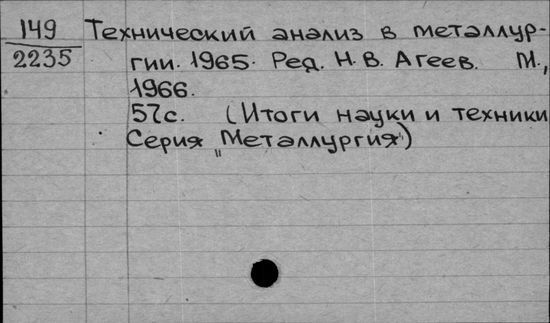 149 Техническиѝ анализ в металлур-
2235 гии. 1965. Ред. Н. В. Агеев. М.,
1966.
57с. (Итоги науки и техники
Серия „Металлургия")